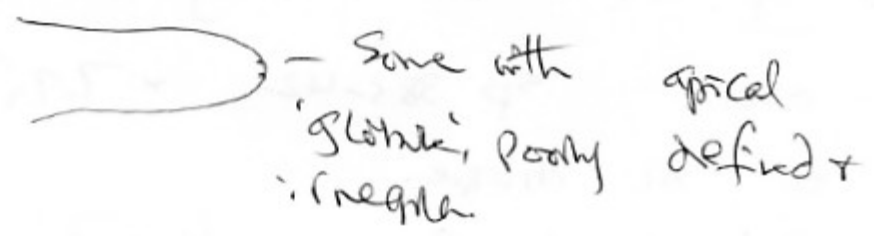 – Some with apical
'globule', poorly defined +
irregular.